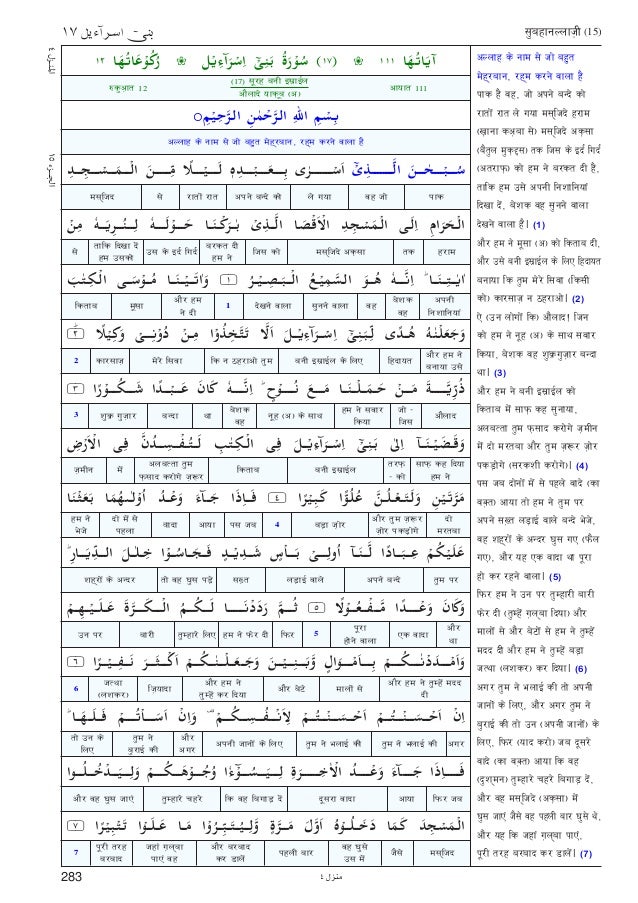 بنی اسرآءیل ١٧
सुबहानल्लज़ी (15)
اٰیَاتُهَا ١١١ ❀ (١٧) سُوْرَةُ بَنِیْٓ اِسْرَآءِیْلَ ❀ رُكُوْعَاتُهَا ١٢
आयात 111 (17) सूरह बनी इस्राईल रुकुआत 12
औलादे याकूब (अ)
بِسْمِ اللهِ الرَّحْمٰنِ الرَّحِیْمِ
अल्लाह के नाम से जो बहुत मेहरबान, रहम करने वाला है
سُبْحٰنَ الَّذِیْٓ اَسْرٰی بِعَبْدِهٖ لَیْلًا مِّنَ الْمَسْجِدِ
पाक वह जो ले गया अपने बन्दे को रातों रात से मसजिद
الْحَرَامِ اِلَی الْمَسْجِدِ الْاَقْصَا الَّذِیْ بٰرَكْنَا حَوْلَهٗ لِنُرِیَهٗ مِنْ
हराम तक मसजिदे अक़सा जिस को बरकत दी हम ने उस के इर्द गिर्द ताकि दिखा दें हम उसको से
اٰیٰتِنَا ؕ اِنَّهٗ هُوَ السَّمِیْعُ الْبَصِیْرُ ١ وَاٰتَیْنَا مُوْسَی الْكِتٰبَ
अपनी निशानियां बेशक वह वह सुनने वाला देखने वाला 1 और हम ने दी मूसा किताब
وَجَعَلْنٰهُ هُدًی لِّبَنِیْٓ اِسْرَآءِیْلَ اَلَّا تَتَّخِذُوْا مِنْ دُوْنِیْ وَكِیْلًا ٢
और हम ने बनाया उसे हिदायत बनी इस्राईल के लिए कि न ठहराओ तुम मेरे सिवा कारसाज़ 2
ذُرِّیَّةَ مَنْ حَمَلْنَا مَعَ نُوْحٍ ؕ اِنَّهٗ كَانَ عَبْدًا شَكُوْرًا ٣
औलाद जो - जिस हम ने सवार किया नूह (अ) के साथ बेशक वह था बन्दा शुक्र गुज़ार 3
وَقَضَیْنَآ اِلٰی بَنِیْٓ اِسْرَآءِیْلَ فِی الْكِتٰبِ لَتُفْسِدُنَّ فِی الْاَرْضِ
साफ़ कह दिया हम ने तरफ़ - को बनी इस्राईल किताब अलबत्ता तुम फ़साद करोगे ज़रूर में ज़मीन
مَرَّتَیْنِ وَلَتَعْلُنَّ عُلُوًّا كَبِیْرًا ٤ فَاِذَا جَآءَ وَعْدُ اُوْلٰىهُمَا بَعَثْنَا
दो मरतबा और तुम ज़रूर ज़ोर पकड़ोगे बड़ा ज़ोर 4 पस जब आया वादा दो में से पहला हम ने भेजे
عَلَیْكُمْ عِبَادًا لَّنَآ اُولِیْ بَاْسٍ شَدِیْدٍ فَجَاسُوْا خِلٰلَ الدِّیَارِ ؕ
तुम पर अपने बन्दे लड़ाई वाले सख़्त तो वह घुस पड़े शहरों के अन्दर
وَكَانَ وَعْدًا مَّفْعُوْلًا ٥ ثُمَّ رَدَدْنَا لَكُمُ الْكَرَّةَ عَلَیْهِمْ
और था एक वादा पूरा होने वाला 5 फिर हम ने फेर दी तुम्हारे लिए बारी उन पर
وَاَمْدَدْنٰكُمْ بِاَمْوَالٍ وَّبَنِیْنَ وَجَعَلْنٰكُمْ اَكْثَرَ نَفِیْرًا ٦
और हम ने तुम्हें मदद दी मालों से और बेटे और हम ने तुम्हें कर दिया ज़ियादा जत्था (लशकर) 6
اِنْ اَحْسَنْتُمْ اَحْسَنْتُمْ لِاَنْفُسِكُمْ وَاِنْ اَسَاْتُمْ فَلَهَا ؕ
अगर तुम ने भलाई की तुम ने भलाई की अपनी जानों के लिए और अगर तुम ने बुराई की तो उन के लिए
فَاِذَا جَآءَ وَعْدُ الْاٰخِرَةِ لِیَسُوْٓءٗا وُجُوْهَكُمْ وَلِیَدْخُلُوا
फिर जब आया दूसरा वादा कि वह बिगाड़ दें तुम्हारे चहरे और वह घुस जाएं
الْمَسْجِدَ كَمَا دَخَلُوْهُ اَوَّلَ مَرَّةٍ وَّلِیُتَبِّرُوْا مَا عَلَوْا تَتْبِیْرًا ٧
मसजिद जैसे वह घुसे उस में पहली बार और बरबाद कर डालें जहां ग़लबा पाएं वह पूरी तरह बरबाद 7
अल्लाह के नाम से जो बहुत
मेहरबान, रहम करने वाला है
पाक है वह, जो अपने बन्दे को
रातों रात ले गया मसजिदे हराम
(ख़ाना कअ़बा से) मसजिदे अक़सा
(बैतुल मुक़द्दस) तक जिस के इर्द गिर्द
(अतराफ़) को हम ने बरकत दी है,
ताकि हम उसे अपनी निशानियां
दिखा दें, बेशक वह सुनने वाला
देखने वाला है। (1)
और हम ने मूसा (अ) को किताब दी,
और उसे बनी इस्राईल के लिए हिदायत
बनाया कि तुम मेरे सिवा (किसी
को) कारसाज़ न ठहराओ। (2)
ऐ (उन लोगों कि) औलाद! जिन
को हम ने नूह (अ) के साथ सवार
किया, बेशक वह शुक्रगुज़ार बन्दा
था। (3)
और हम ने बनी इस्राईल को
किताब में साफ़ कह सुनाया,
अलबत्ता तुम फ़साद करोगे ज़मीन
में दो मरतबा और तुम ज़रूर ज़ोर
पकड़ोगे (सरकशी करोगे)। (4)
पस जब दोनों में से पहले वादे (का
वक़्त) आया तो हम ने तुम पर
अपने सख़्त लड़ाई वाले बन्दे भेजे,
वह शहरों के अन्दर घुस गए (फैल
गए), और यह एक वादा था पूरा
हो कर रहने वाला। (5)
फिर हम ने उन पर तुम्हारी बारी
फेर दी (तुम्हें ग़लबा दिया) और
मालों से और बेटों से हम ने तुम्हें
मदद दी और हम ने तुम्हें बड़ा
जत्था (लशकर) कर दिया। (6)
अगर तुम ने भलाई की तो अपनी
जानों के लिए, और अगर तुम ने
बुराई की तो उन (अपनी जानों) के
लिए, फिर (याद करो) जब दूसरे
वादे (का वक़्त) आया कि वह
(दुशमन) तुम्हारे चहरे बिगाड़ दें,
और वह मसजिदे (अक़सा) में
घुस जाएं जैसे वह पहली बार घुसे थे,
और यह कि जहां ग़लबा पाएं,
पूरी तरह बरबाद कर डालें। (7)
283
منزل ٤